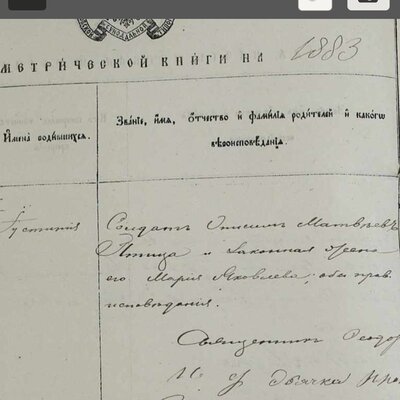 МЕТРИЧЕСКОЙ КНИГИ НА 1883
Званіе, имя, отчество и фамилія родителей и какого
Имена родившихся.
вѣроисповѣданія.
Іустинія
Солдатъ Онисимъ Матвѣевъ
Птица и законная жена
его Марія Яковлева, оба прав.
исповѣданія.
Священникъ Ѳеодор
И. д. дьячка